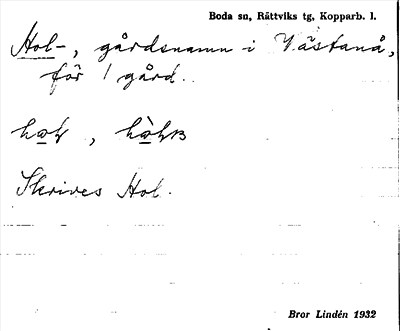 Boda sn, Rättviks tg, Kopparb. l.
Hol-, gårdsnamn i Västanå,
för 1 gård.
Skrives Hol.
Bror Lindén 1932